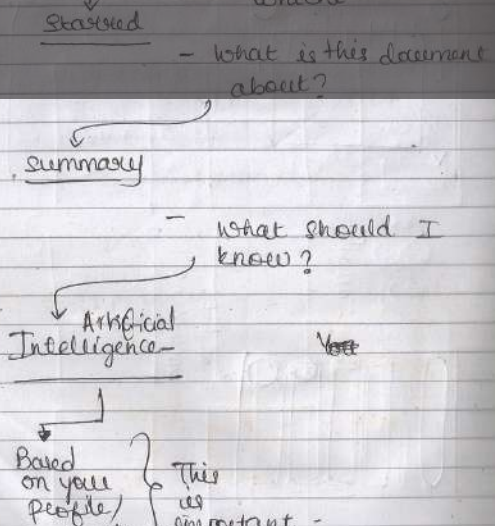 Starred
- What is this document
about?
Summary
- What should I
know?
Artificial
Intelligence-
Based
on your
profile/
This
is
important -